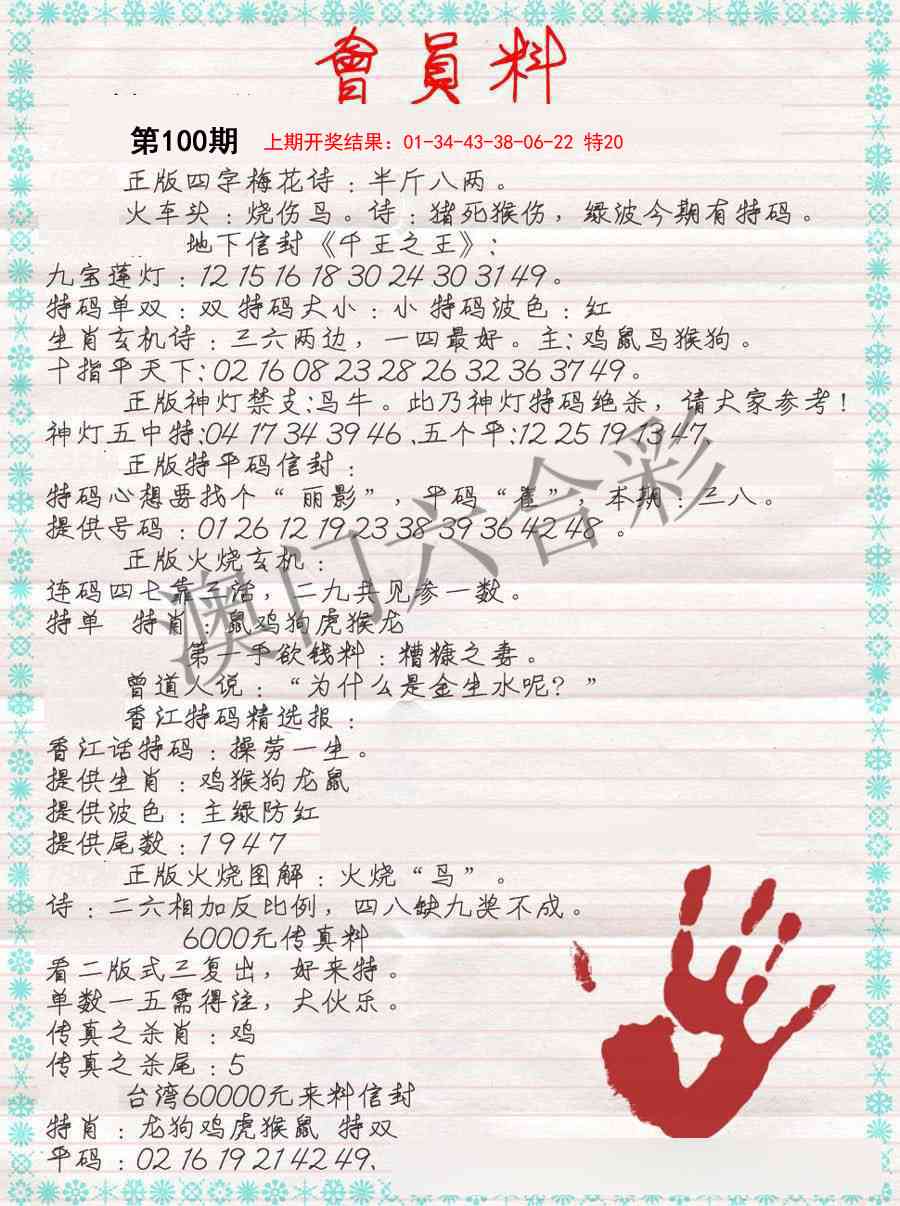 會員料
第100期 上期开奖结果：01-34-43-38-06-22 特20
正版四字梅花诗：半斤八两。
火车头：烧伤鸟。诗：猪死猴伤，绿波今期有特码。
地下信封《千王之王》：
九宝莲灯：12 15 16 18 30 24 30 31 49。
特码单双：双 特码大小：小 特码波色：红
生肖玄机诗：三六两边，一四最好。主：鸡鼠鸟猴狗。
十指平天下：02 16 08 23 28 26 32 36 37 49。
正版神灯禁支：鸟牛。此乃神灯特码绝杀，请大家参考！
神灯五中特：04 17 34 39 46、五个平：12 25 19 13 47、
正版特平码信封：
特码心想要找个“丽影”，平码“雀”，本期：三八。
提供号码：01 26 12 19 23 38 39 36 42 48 。
正版火烧玄机：
连码四七靠三治，二九共见参一数。
特单 特肖：鼠鸡狗虎猴龙
第一手欲钱料：糟糠之妻。
曾道人说：“为什么是金生水呢？”
香江特码精选报：
香江话特码：操劳一生。
提供生肖：鸡猴狗龙鼠
提供波色：主绿防红
提供尾数：1 9 4 7
正版火烧图解：火烧“鸟”。
诗：二六相加反比例，四八缺九奖不成。
6000元传真料
看二版式三复出，好来特。
单数一五需得注，大伙乐。
传真之杀肖：鸡
传真之杀尾：5
台湾60000元来料信封
特肖：龙狗鸡虎猴鼠 特双
平码：02 16 19 21 42 49、
澳门六合彩